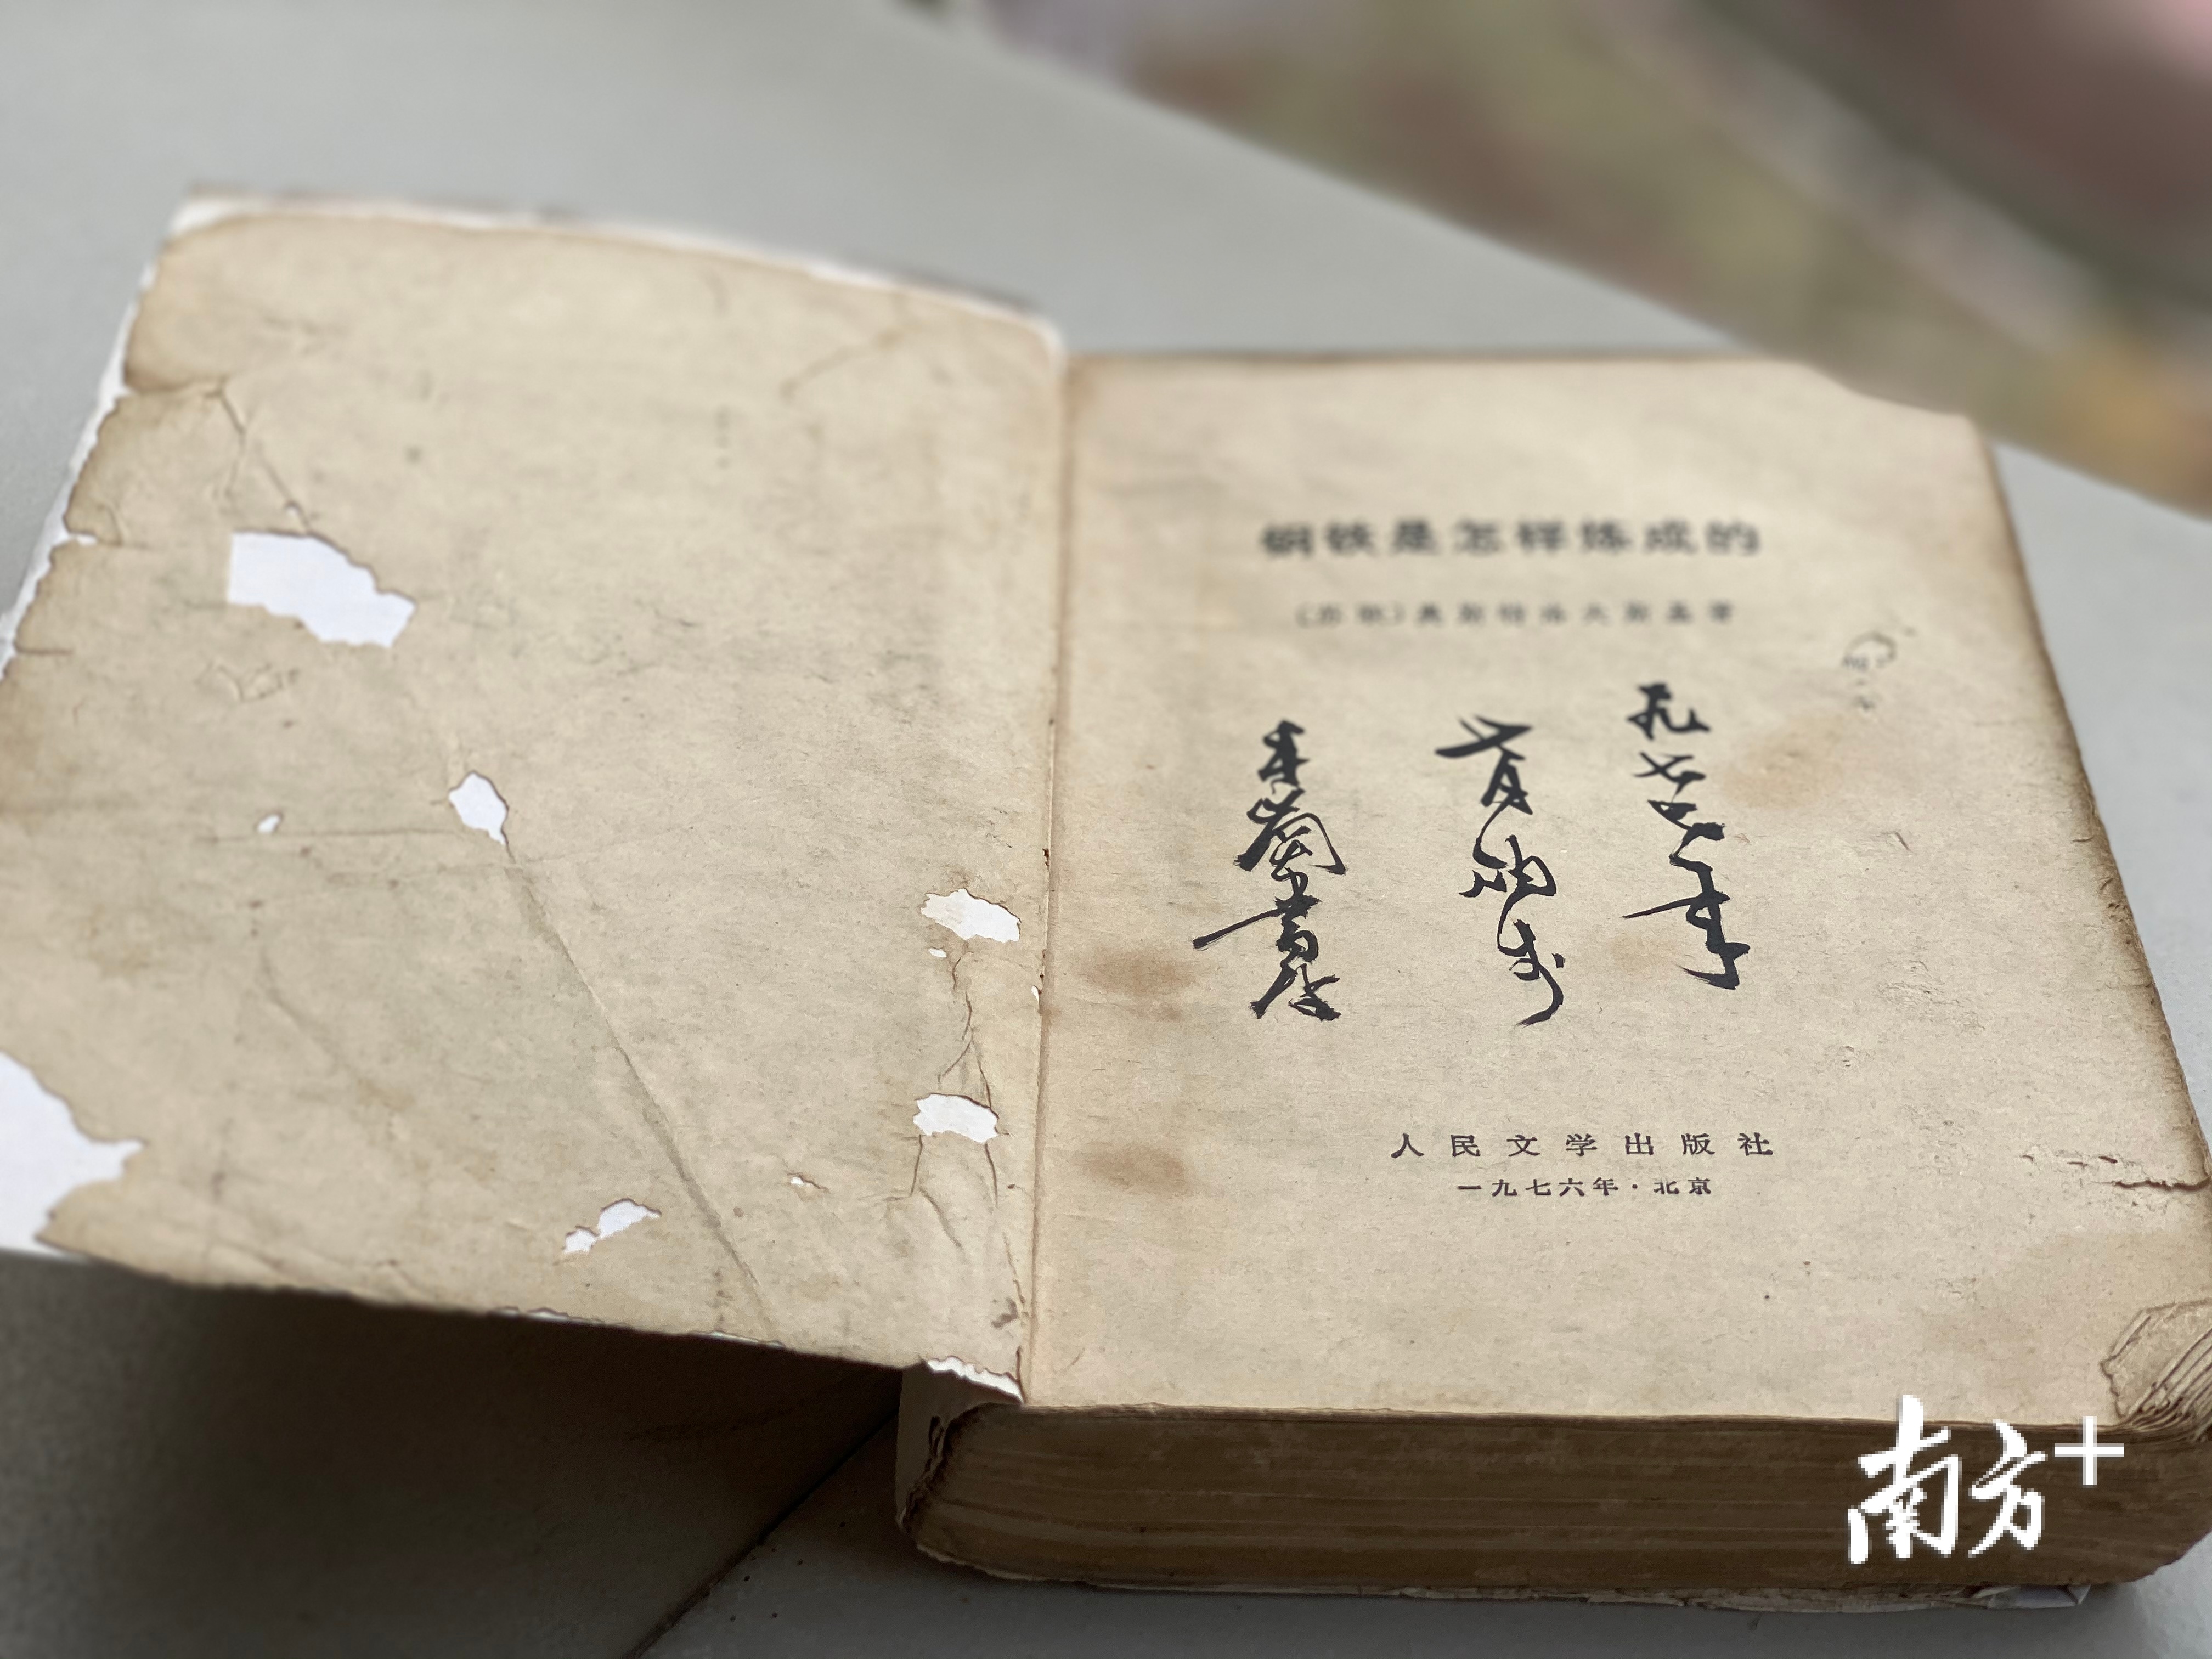 钢铁是怎样炼成的
〔苏联〕奥斯特洛夫斯基著
一九七七年
人民文学出版社
一九七六年·北京
南方+